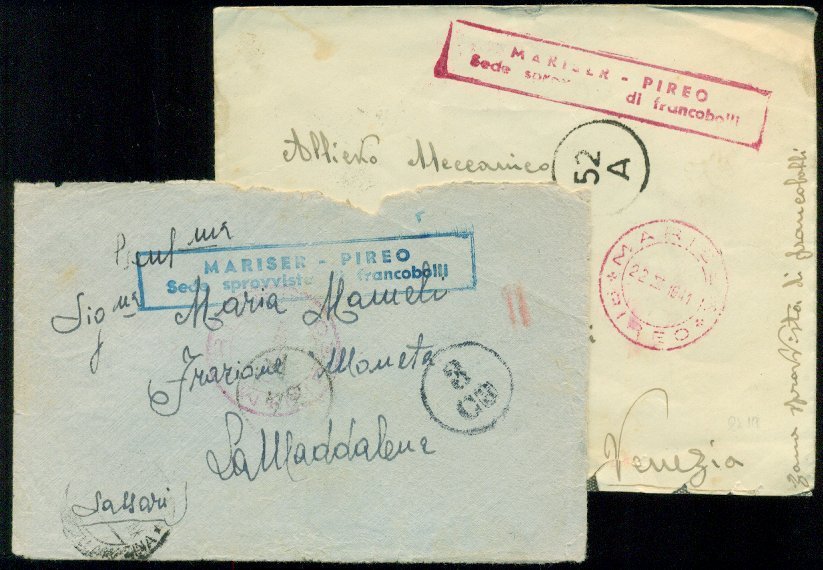 MARISER - PIREO
Sede sprovvista di francobolli
Allievo Meccanico
52
A
MARI
22. 1941
PIREO
Venezia
zona sprovvista di francobolli
MARISER - PIREO
Sede sprovvista di francobolli
Sig.na Maria Mameli
Frazione Moneta
La Maddalena
(Sassari)
3